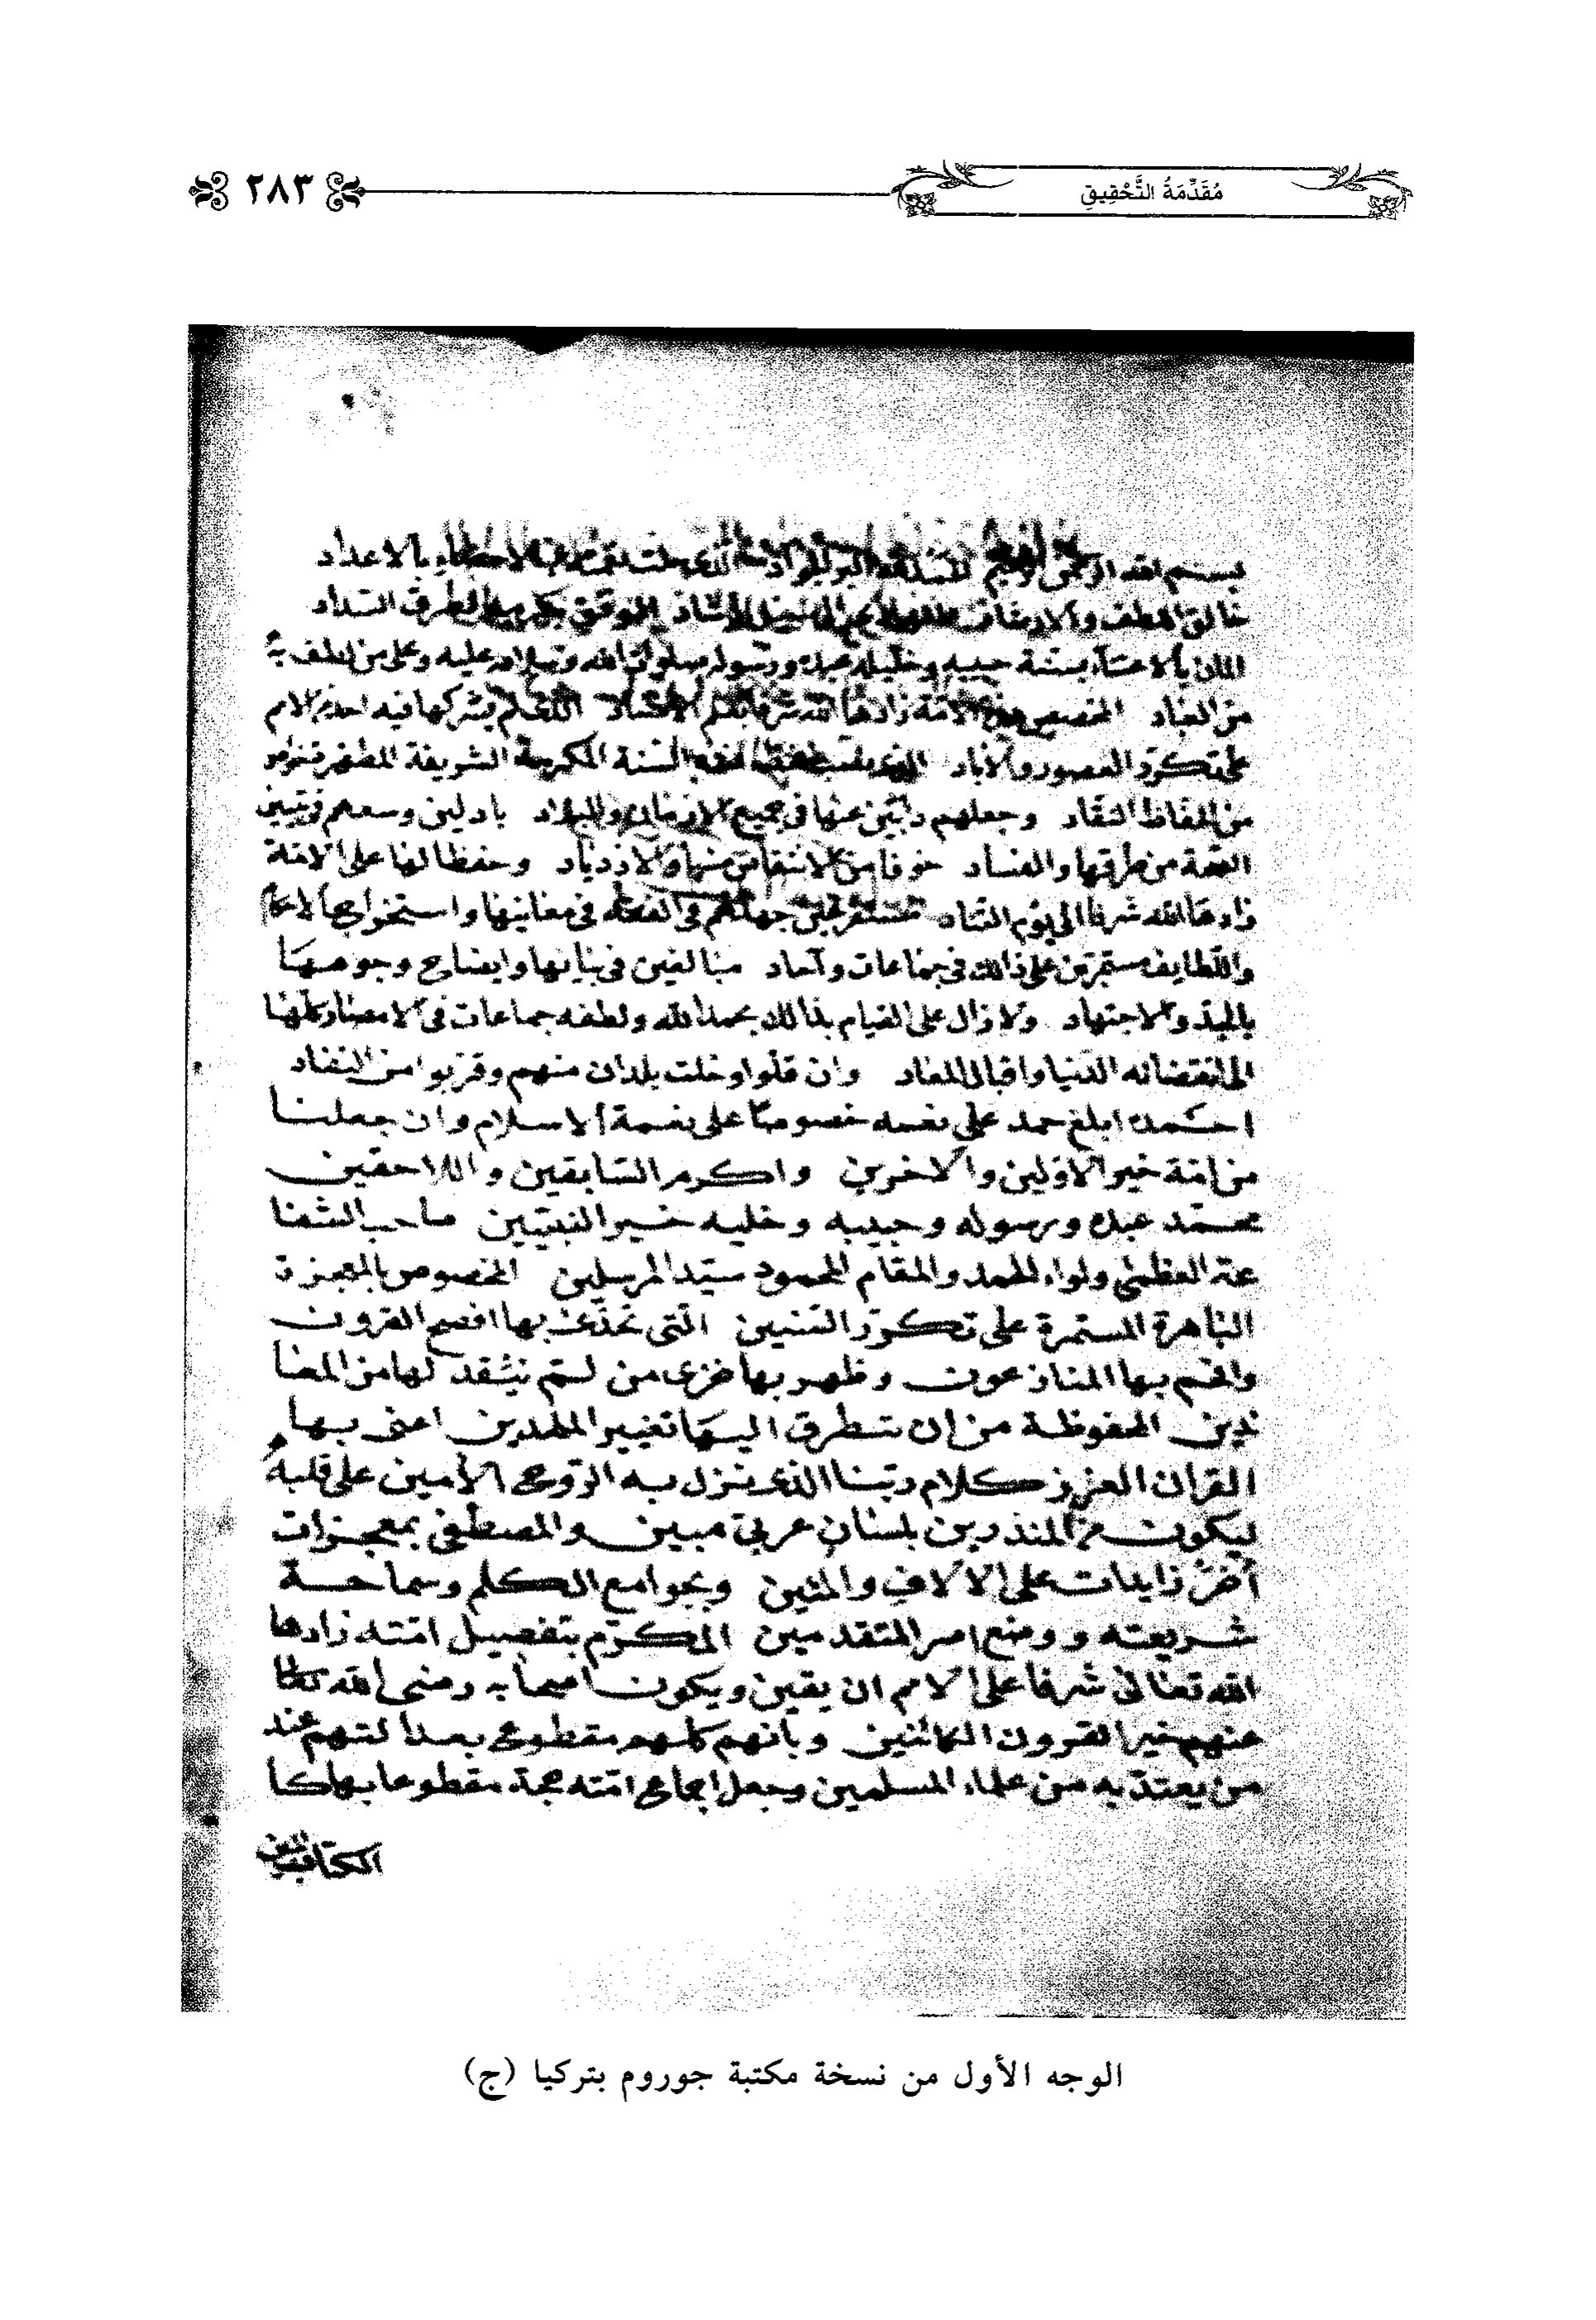 مُقَدِّمَةُ التَّحْقِيقِ
٢٨٣
بسم الله الرحمن الرحيم الحمد لله البر الجواد الذي جلت نعمه عن الاحصاء بالاعداد
خالق اللطف والارشاد الهادي الى سبيل الرشاد الموفق بكرمه لطرق السداد
المان بالاعتناء بسنة حبيبه وخليله عبده ورسوله صلوات الله وسلامه عليه وعلى من لطف به
من العباد المخصص هذه الامة زادها الله شرفا بعلم الاسناد الذي لم يشركها فيه احد من الامم
على تكرر العصور والآباد الذي نصب لحفظ هذه السنة المكرمة الشريفة المطهرة خواص
من الحفاظ النقاد وجعلهم ذابين عنها في جميع الازمان والبلاد باذلين وسعهم في تبيين
الصحة من طرقها والفساد خوفا من الانتقاص منها والازدياد وحفظا لها على الامة
زادها الله شرفا الى يوم التناد مستفرغين جهدهم في التفقه في معانيها واستخراج الاحكام
واللطايف مستمرين على ذلك في جماعات وآحاد مبالغين في بيانها وايضاح وجوهها
بالجد والاجتهاد ولا زال على القيام بذلك بحمد الله ولطفه جماعات في الامصار كلها
الى انقضاء الدنيا واقبال المعاد وان قلوا وخلت بلدان منهم وقربوا من النفاد
احمده ابلغ حمد على نعمه خصوصا على نعمة الاسلام وان جعلنا
من امة خير الاولين والاخرين واكرم السابقين واللاحقين
محمد عبده ورسوله وحبيبه وخليله خير النبيين صاحب الشفا
عة العظمى ولواء الحمد والمقام المحمود سيد المرسلين المخصوص بالمعجزة
الباهرة المستمرة على تكرر السنين التي تحدى بها افصح القرون
وافحم بها المنازعون وظهر بها خزي من لم ينقد لها من المعا
ندين المحفوظة من ان تتطرق اليها تغيير الملحدين اعني بها
القران العزيز كلام ربنا الذي نزل به الروح الأمين على قلبه
ليكون من المنذرين بلسان عربي مبين والمصطفى بمعجزات
أخر زايدات على الالاف والمئين وبجوامع الكلم وسماحة
شريعته ووضع اصر المتقدمين المكرم بتفضيل امته زادها
الله تعالى شرفا على الامم ان يقين ويكون اصحابه رضي الله تعالى
عنهم خير القرون الكائنين وبانهم كلهم مقطوع بعدالتهم عند
من يعتد به من علماء المسلمين وجعل اجماع امته حجة مقطوعا بها كا
الكتاب
الوجه الأول من نسخة مكتبة جوروم بتركيا (ج)